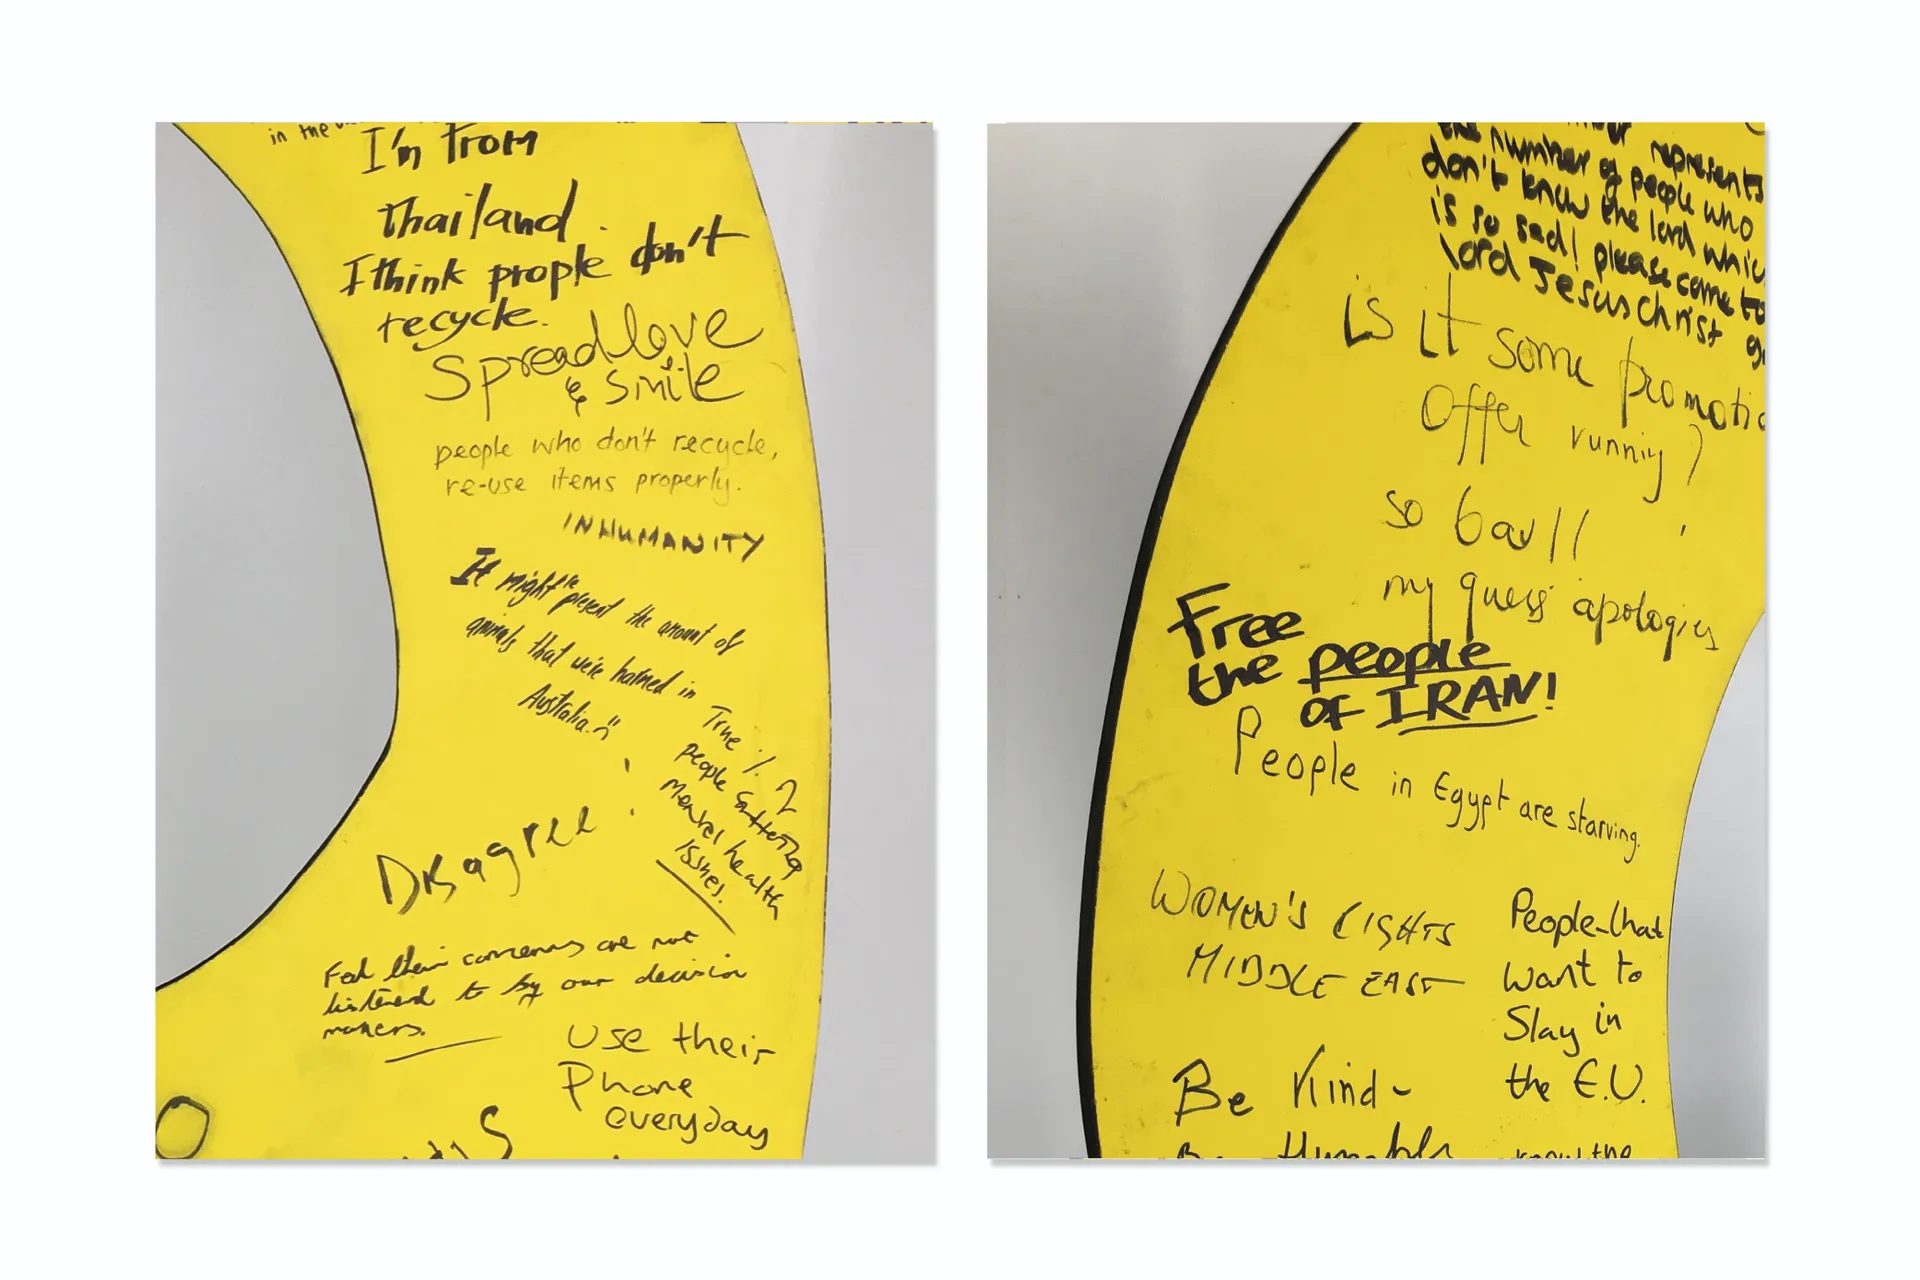 in the
I'm from
Thailand.
I think prople don't
recycle.
Spread love
& smile
people who don't recycle,
re-use items properly.
INHUMANITY
It might "present the amount of
animals that were harmed in
Australia."
True % ?
people suffering
Mental health
issues.
Disagree
Feel their concerns are not
listened to by our decision
makers.
use their
Phone
everyday
represents
the number of people who
don't know the lord which
is so sad! please come to
lord Jesus Christ
is it some promotio
Offer running?
so bad!!
my guess apologies
Free
the people
of IRAN!
People in Egypt are starving.
WOMEN'S RIGHTS
MIDDLE EAST
People that
want to
Stay in
the E.U.
Be Kind -
Be Humble
know the